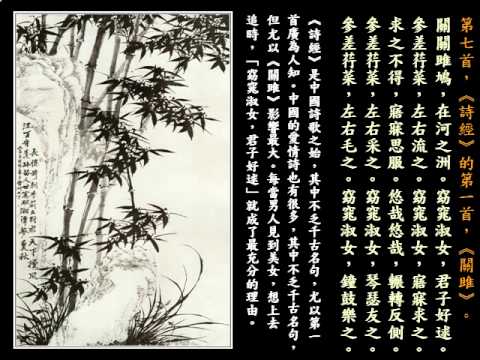 第七首，《詩經》的第一首，《關雎》。
關關雎鳩，在河之洲。窈窕淑女，君子好逑。
參差荇菜，左右流之。窈窕淑女，寤寐求之。
求之不得，寤寐思服。悠哉悠哉，輾轉反側。
參差荇菜，左右采之。窈窕淑女，琴瑟友之。
參差荇菜，左右毛之。窈窕淑女，鐘鼓樂之。
《詩經》是中國詩歌之始，其中不乏千古名句，尤以第一
首廣為人知。中國的愛情詩也有很多，其中不乏千古名句，
但尤以《關雎》影響最大。每當男人見到美女，想上去
追時，「窈窕淑女，君子好逑」就成了最充分的理由。